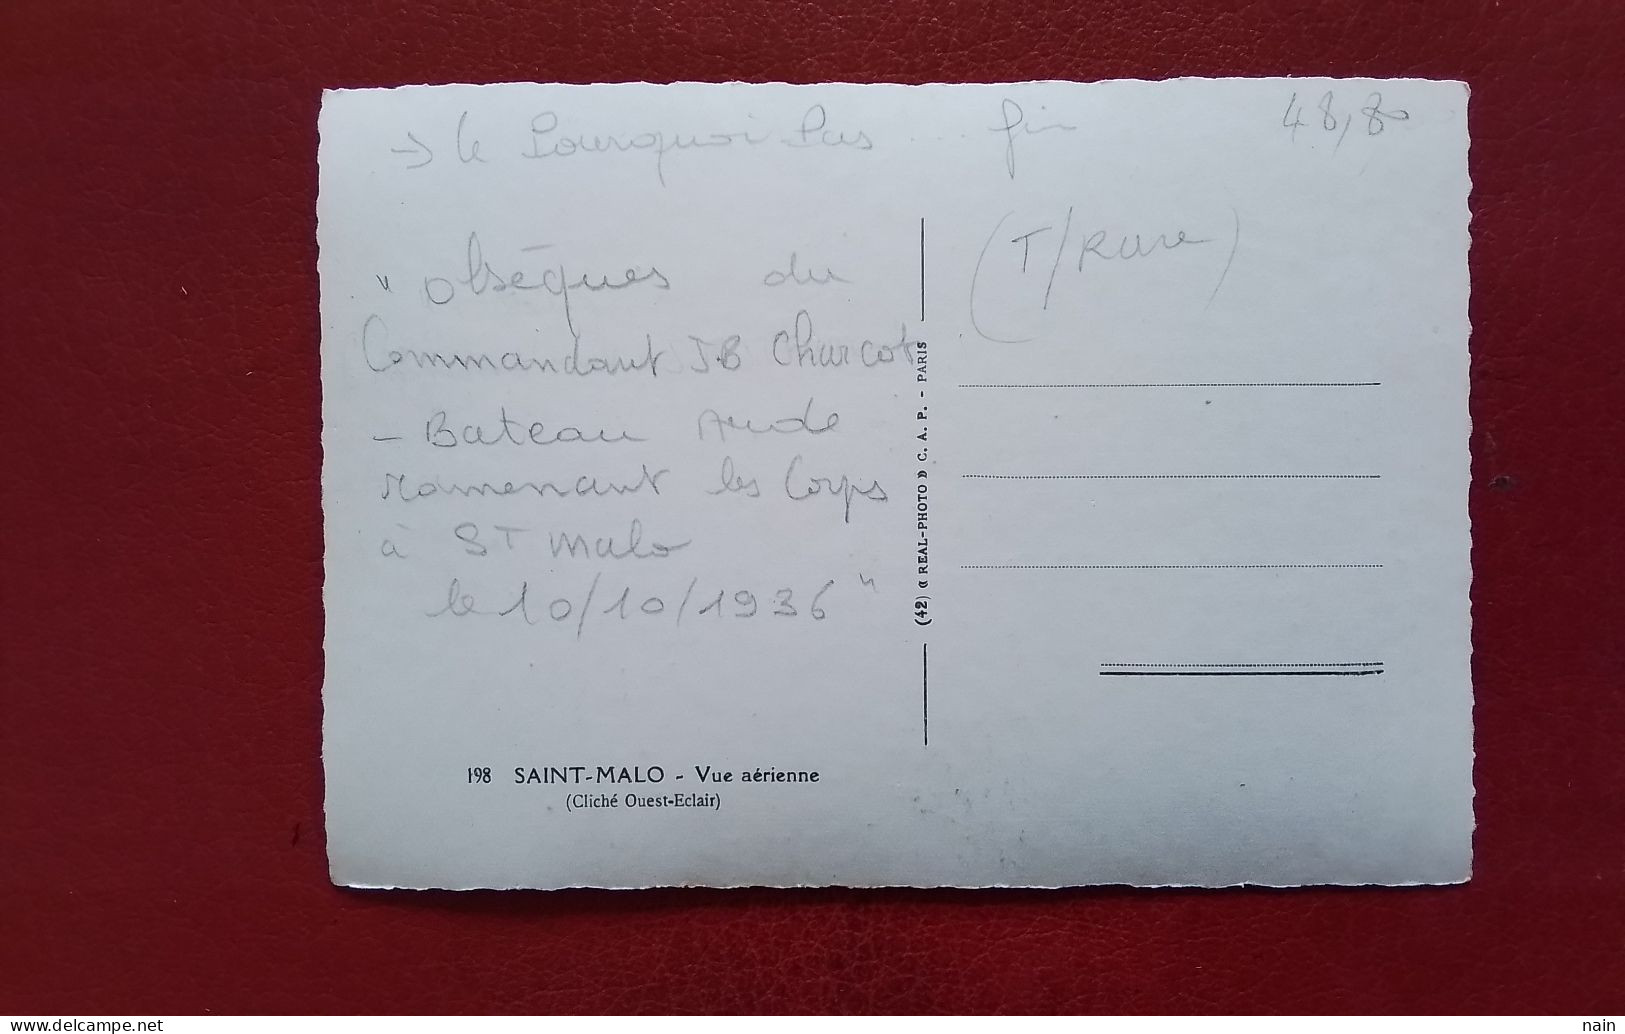 → le Pourquoi Pas .... fin
48,80
(T/Rare)
"Obsèques du
Commandant J.B Charcot
- Bateau Aude
ramenant les Corps
à St Malo
le 10/10/1936"
(42) « REAL-PHOTO » C. A. P. - PARIS
198 SAINT-MALO - Vue aérienne
(Cliché Ouest-Eclair)
nain
delcampe.net